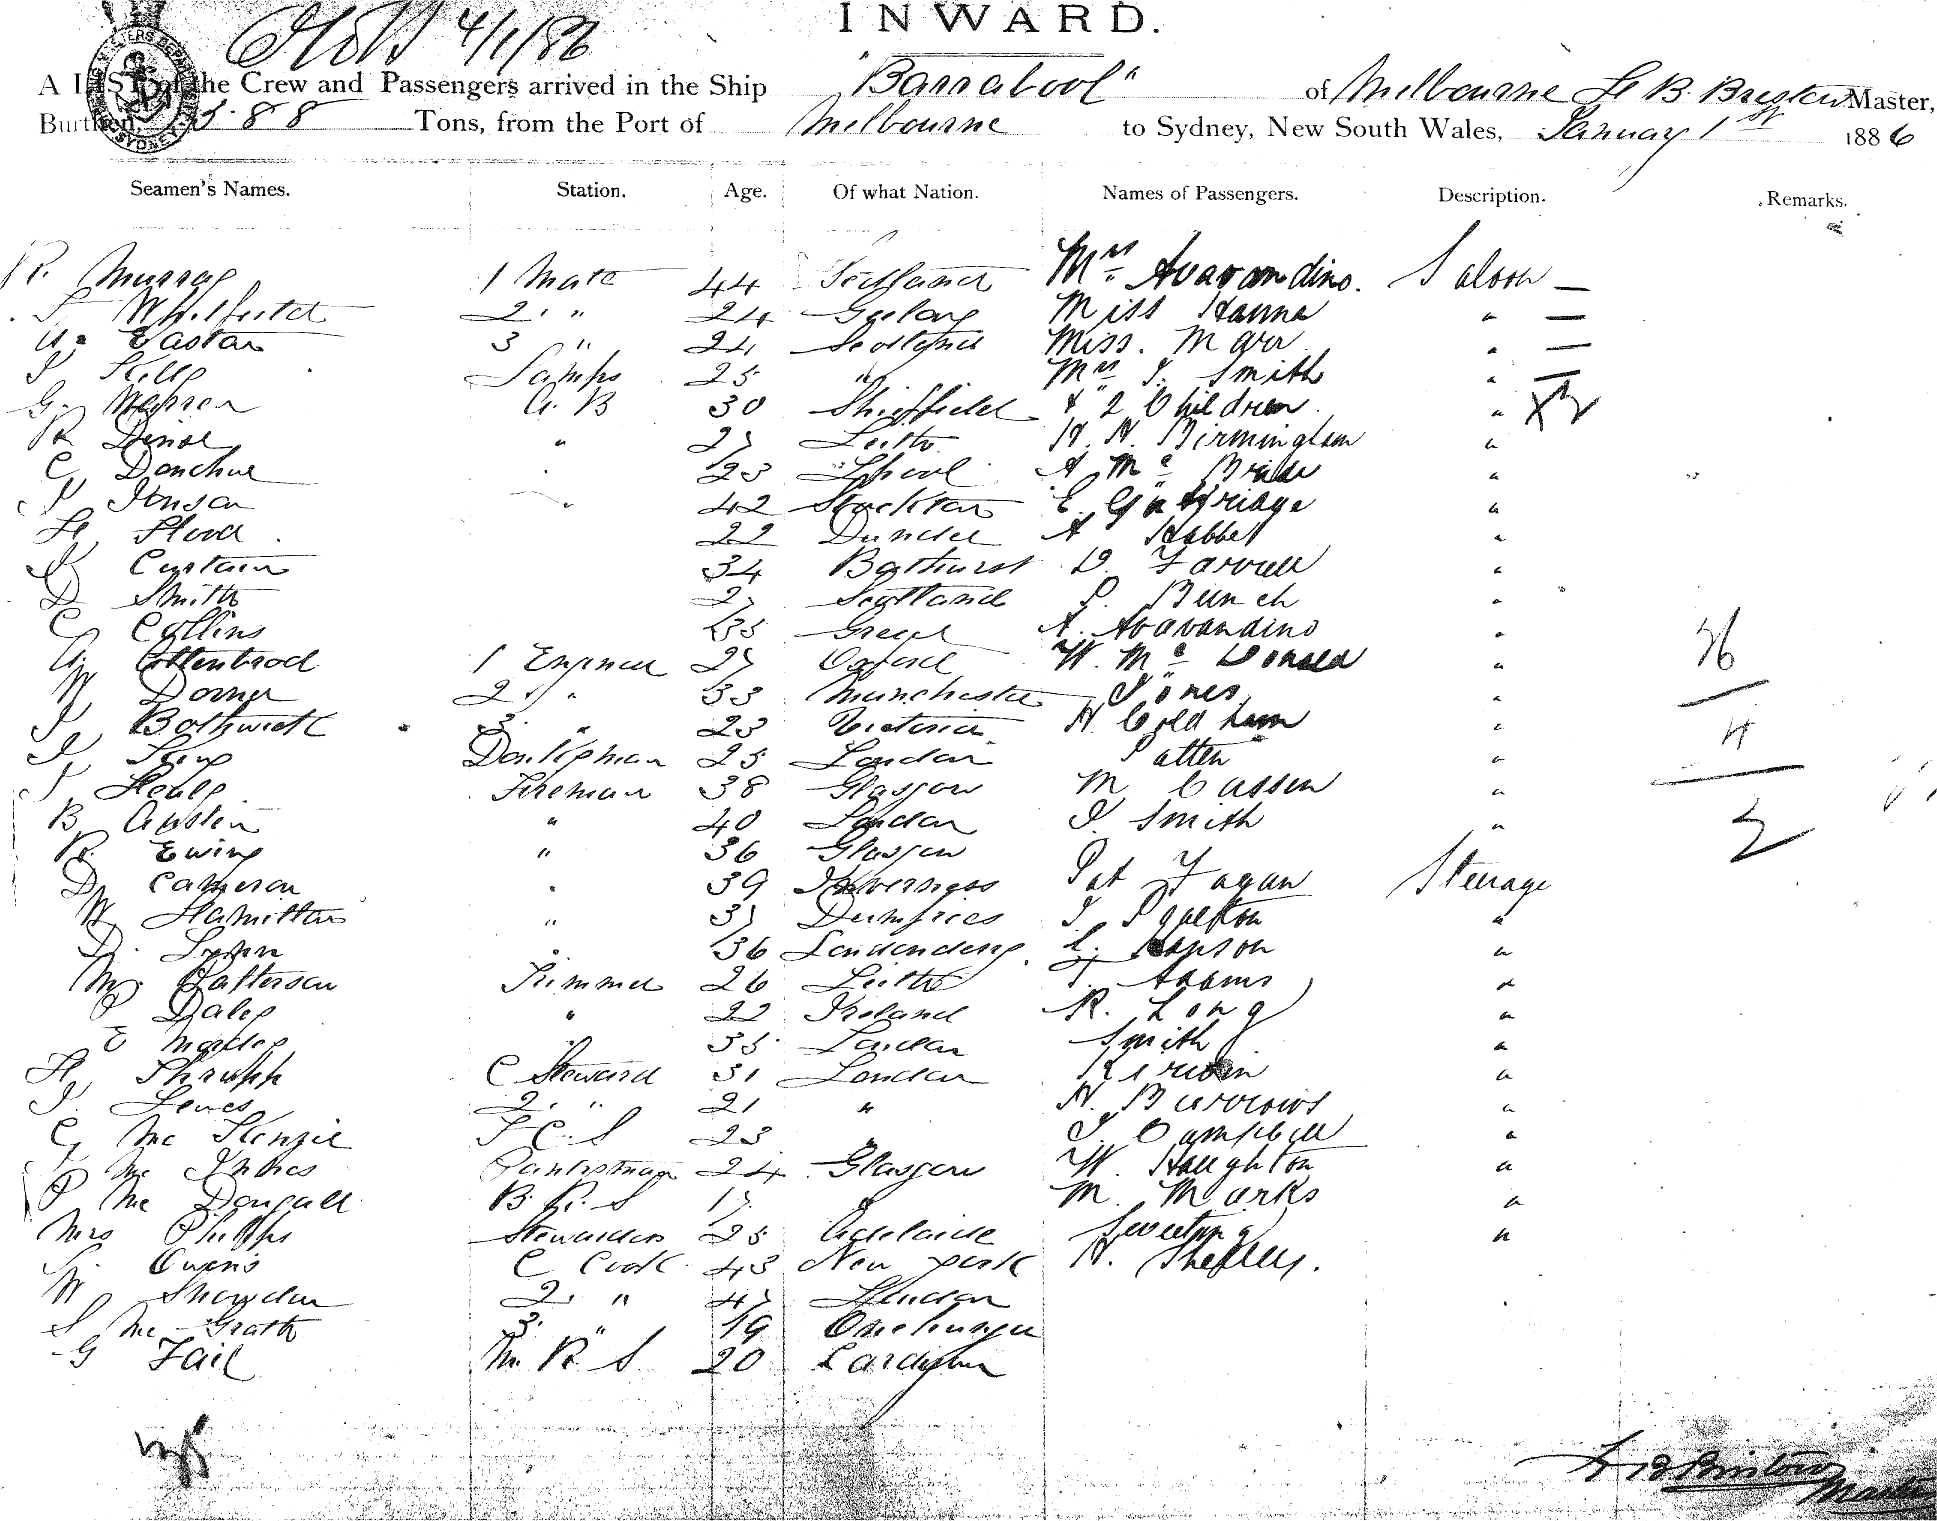 INWARD.
4/1/86
A LIST of the Crew and Passengers arrived in the Ship "Barrabool" of Melbourne H B Bristow Master,
Burthen, 588 Tons, from the Port of Melbourne to Sydney, New South Wales, January 1st 1886
Seamen's Names. Station. Age. Of what Nation. Names of Passengers. Description. Remarks.
R. Murray 1 Mate 44 Scotland Mrs Avavandino. Saloon —
Whitfield 2 " 24 Geelong Miss Hanna " —
3 " 24 Scotland Miss. Marr " —
J Kelly Lamps 25 " Mrs J. Smith " —
G. A. B 30 Sheffield & 2 Children "
R " 27 Leith H. H. Birmingham "
C Donohue 23 L'pool A Mc Bride "
J Jonson " 42 Stockton E "
H Flood 22 Dundee A Hobbs "
J Curtain 34 Bathurst D. Farrell "
D Smith 27 Scotland P. Bunch "
C Collins 35 Greece A. Avavandino "
1 Engineer 27 Oxford W. Mc Donald " 36
W Dorner 2 " 33 Manchester Jones "
J Bothwick 3 " 23 Victoria H Coldham " 4
J King Donkeyman 25 London Patten "
J Healy Fireman 38 Glasgow M Cassen " 2
B Austin " 40 London J. Smith "
R. Ewing " 36 Glasgow
D Cameron " 39 Inverness Pat Fagan Steerage
W Hamilton " 37 Dumfries J. "
D. Lynn " 36 Londonderry "
M. Patterson Trimmer 26 Leith T. Adams "
P Daley " 22 Ireland R. Long "
E Morley " 35 London Smith "
H Thrupp C Steward 31 London "
J. Lewes 2 " 21 " H. Burrows "
G Mc Kenzie F C. S 23 " J. Campbell "
J Mc Innes Pantryman 24 Glasgow W. Haughton "
P Mc Dougall B. R. S 17 " M. Marks "
Mrs Phillips Stewardess 25 Adelaide Sweeting "
Owens C Cook 43 New York H. Shelley.
W Snowdon 2. " 47 London
S Mc Grath 3. " 19 Onehunga
G Fail M. R S 20 Cardigan
H B Bristow
Master